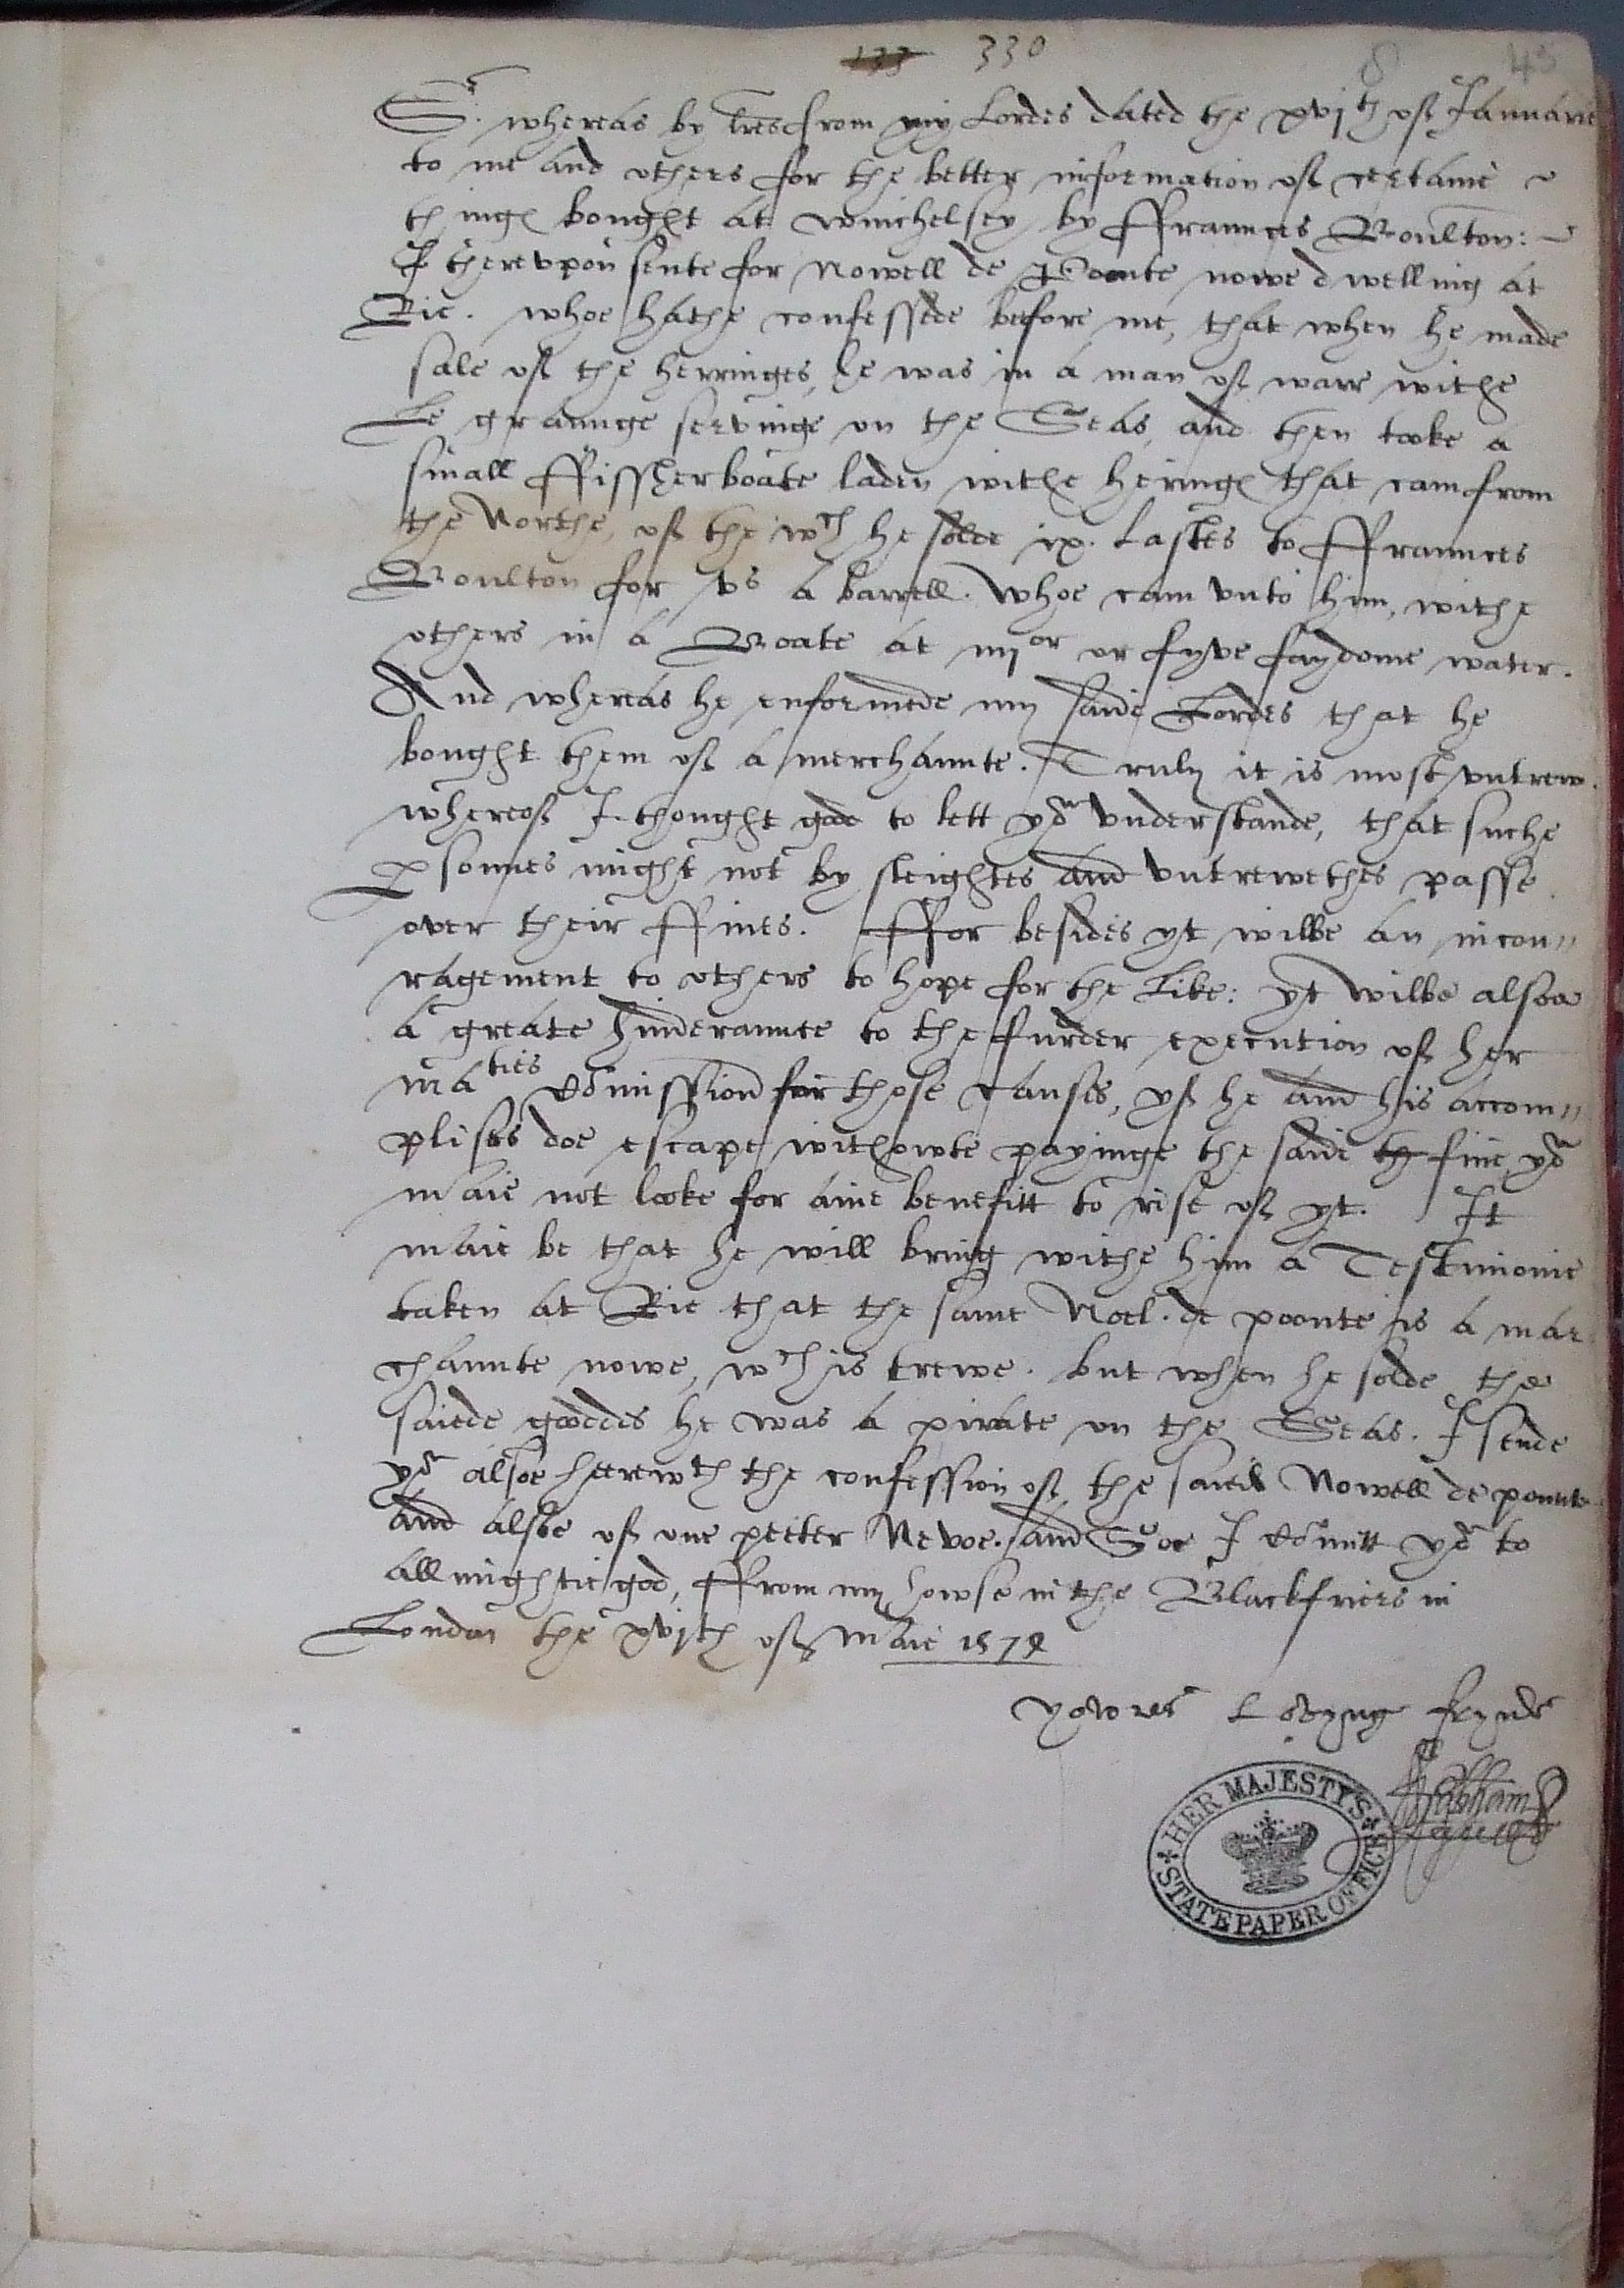 133 330 8 43
Sr. whereas by lres from my Lordes dated the xvjth of Januarie
to me and others for the better information of certaine
thinges bought at winchelsey by ffraunces Boulton:
I therevpon sente for Nowell de Poonte nowe dwelling at
Rie. whoe hathe confessede before me, that when he made
sale of the herringes, he was in a man of warr withe
Le graunge servinge on the Seas, and then tooke a
small ffissherboate laden withe heringes that cam from
the Northe, of the wch he solde ix. Lastes to ffraunces
Boulton for vs a barrell. Whoe cam vnto him, withe
others in a Boate at iiijor or fyve faydome water.
And whereas he enformede my saide Lordes that he
bought them of a merchaunte. Truly it is most vntrew.
whereof I thought good to lett you vnderstande, that suche
psonnes might not by sleightes and vntrewethes passe
over their ffines. ffor besides yt wilbe an incou"
ragement to others to hope for the Like: yt wilbe alsoe
a greate hinderaunce to the furder execution of her
maties Comission for those causes, yf he and his accom"
plises doe escape withowte payinge the saide fine, you
maie not looke for anie benefitt to rise of yt. It
maie be that he will bring withe him a Testimonie
taken at Rie that the same Noel. de poonte is a mar
chaunte nowe, wch is trewe. but when he solde the
saiede gooddes he was a pirate on the Seas. I sende
you alsoe herewth the confession of the saied Nowell de pounte
and alsoe of one peeter Nevoe. and Soe I comitt you to
allmightie god, ffrom my howse in the Blackfriers in
London the xvjth of Maie 1578
yowres Lovyng frynde
Cobham
HER MAJESTY'S
STATE PAPER OFFICE